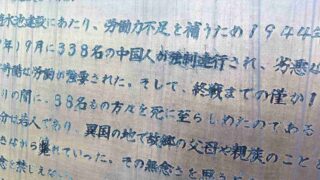 水池建設にあたり、労働力不足を補うため1944年
年9月に338名の中国人が強制連行され、劣悪な
労働が強要された。そして、終戦までの僅か1
りの間に、38名もの方々を死に至らしめたのである
は若人であり、異国の地で故郷の父母や親族のこと
さながら斃れていった。その無念さを思う
念を禁じえない